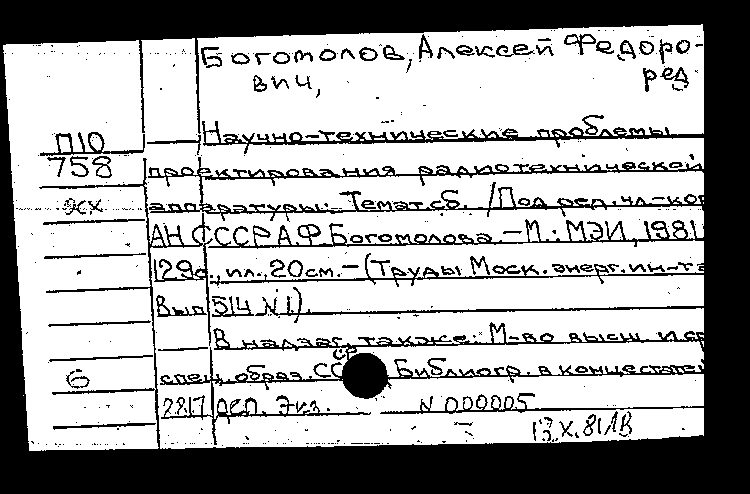 Богомолов, Алексей Федоро-
вич, ред
П10 Научно-технические проблемы
758 проектирования радиотехнической
эсх аппаратуры: Темат. сб. /Под ред. чл-кор
АН СССР А.Ф. Богомолова. – М.: МЭИ, 1981
129с., ил., 20см. – (Труды Моск. энерг. ин-та
Вып 514 N 1).
В надзаг. также: М-во высш. и ср
6 спец. образ. СССР Библиогр. в конце статей
2817 деп. Экз. N 000005
13.X.81